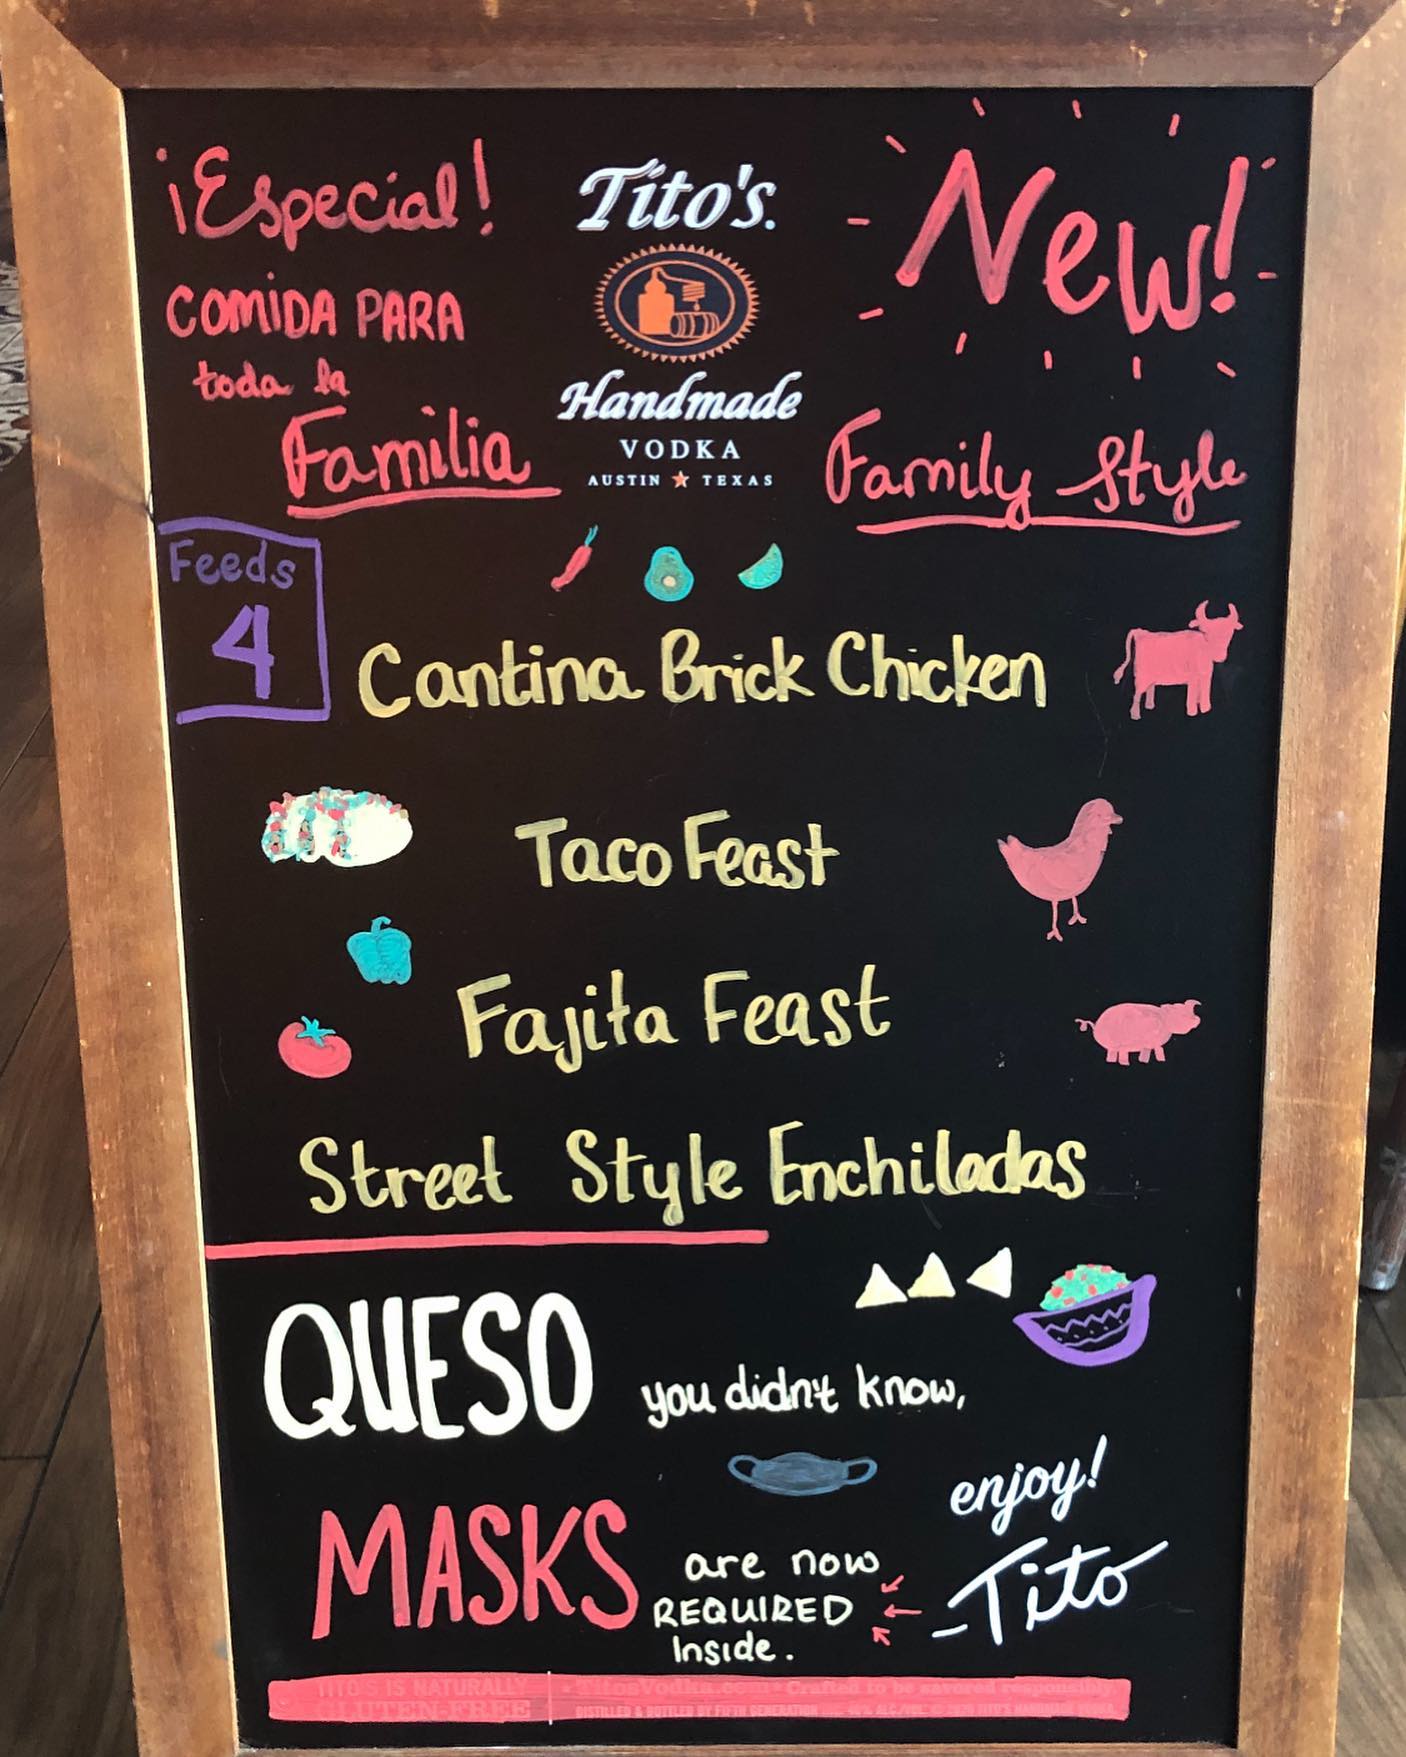 ¡Especial!
COMiDA PARA
toda la
Familia
Tito's.
Handmade
VODKA
AUSTIN ★ TEXAS
New!
Family Style
Feeds
4
Cantina Brick Chicken
Taco Feast
Fajita Feast
Street Style Enchiladas
QUESO you didn't know,
MASKS are now
REQUIRED
Inside.
enjoy!
-Tito
TITO'S IS NATURALLY
GLUTEN-FREE
• TitosVodka.com • Crafted to be savored responsibly
DISTILLED & BOTTLED BY FIFTH GENERATION